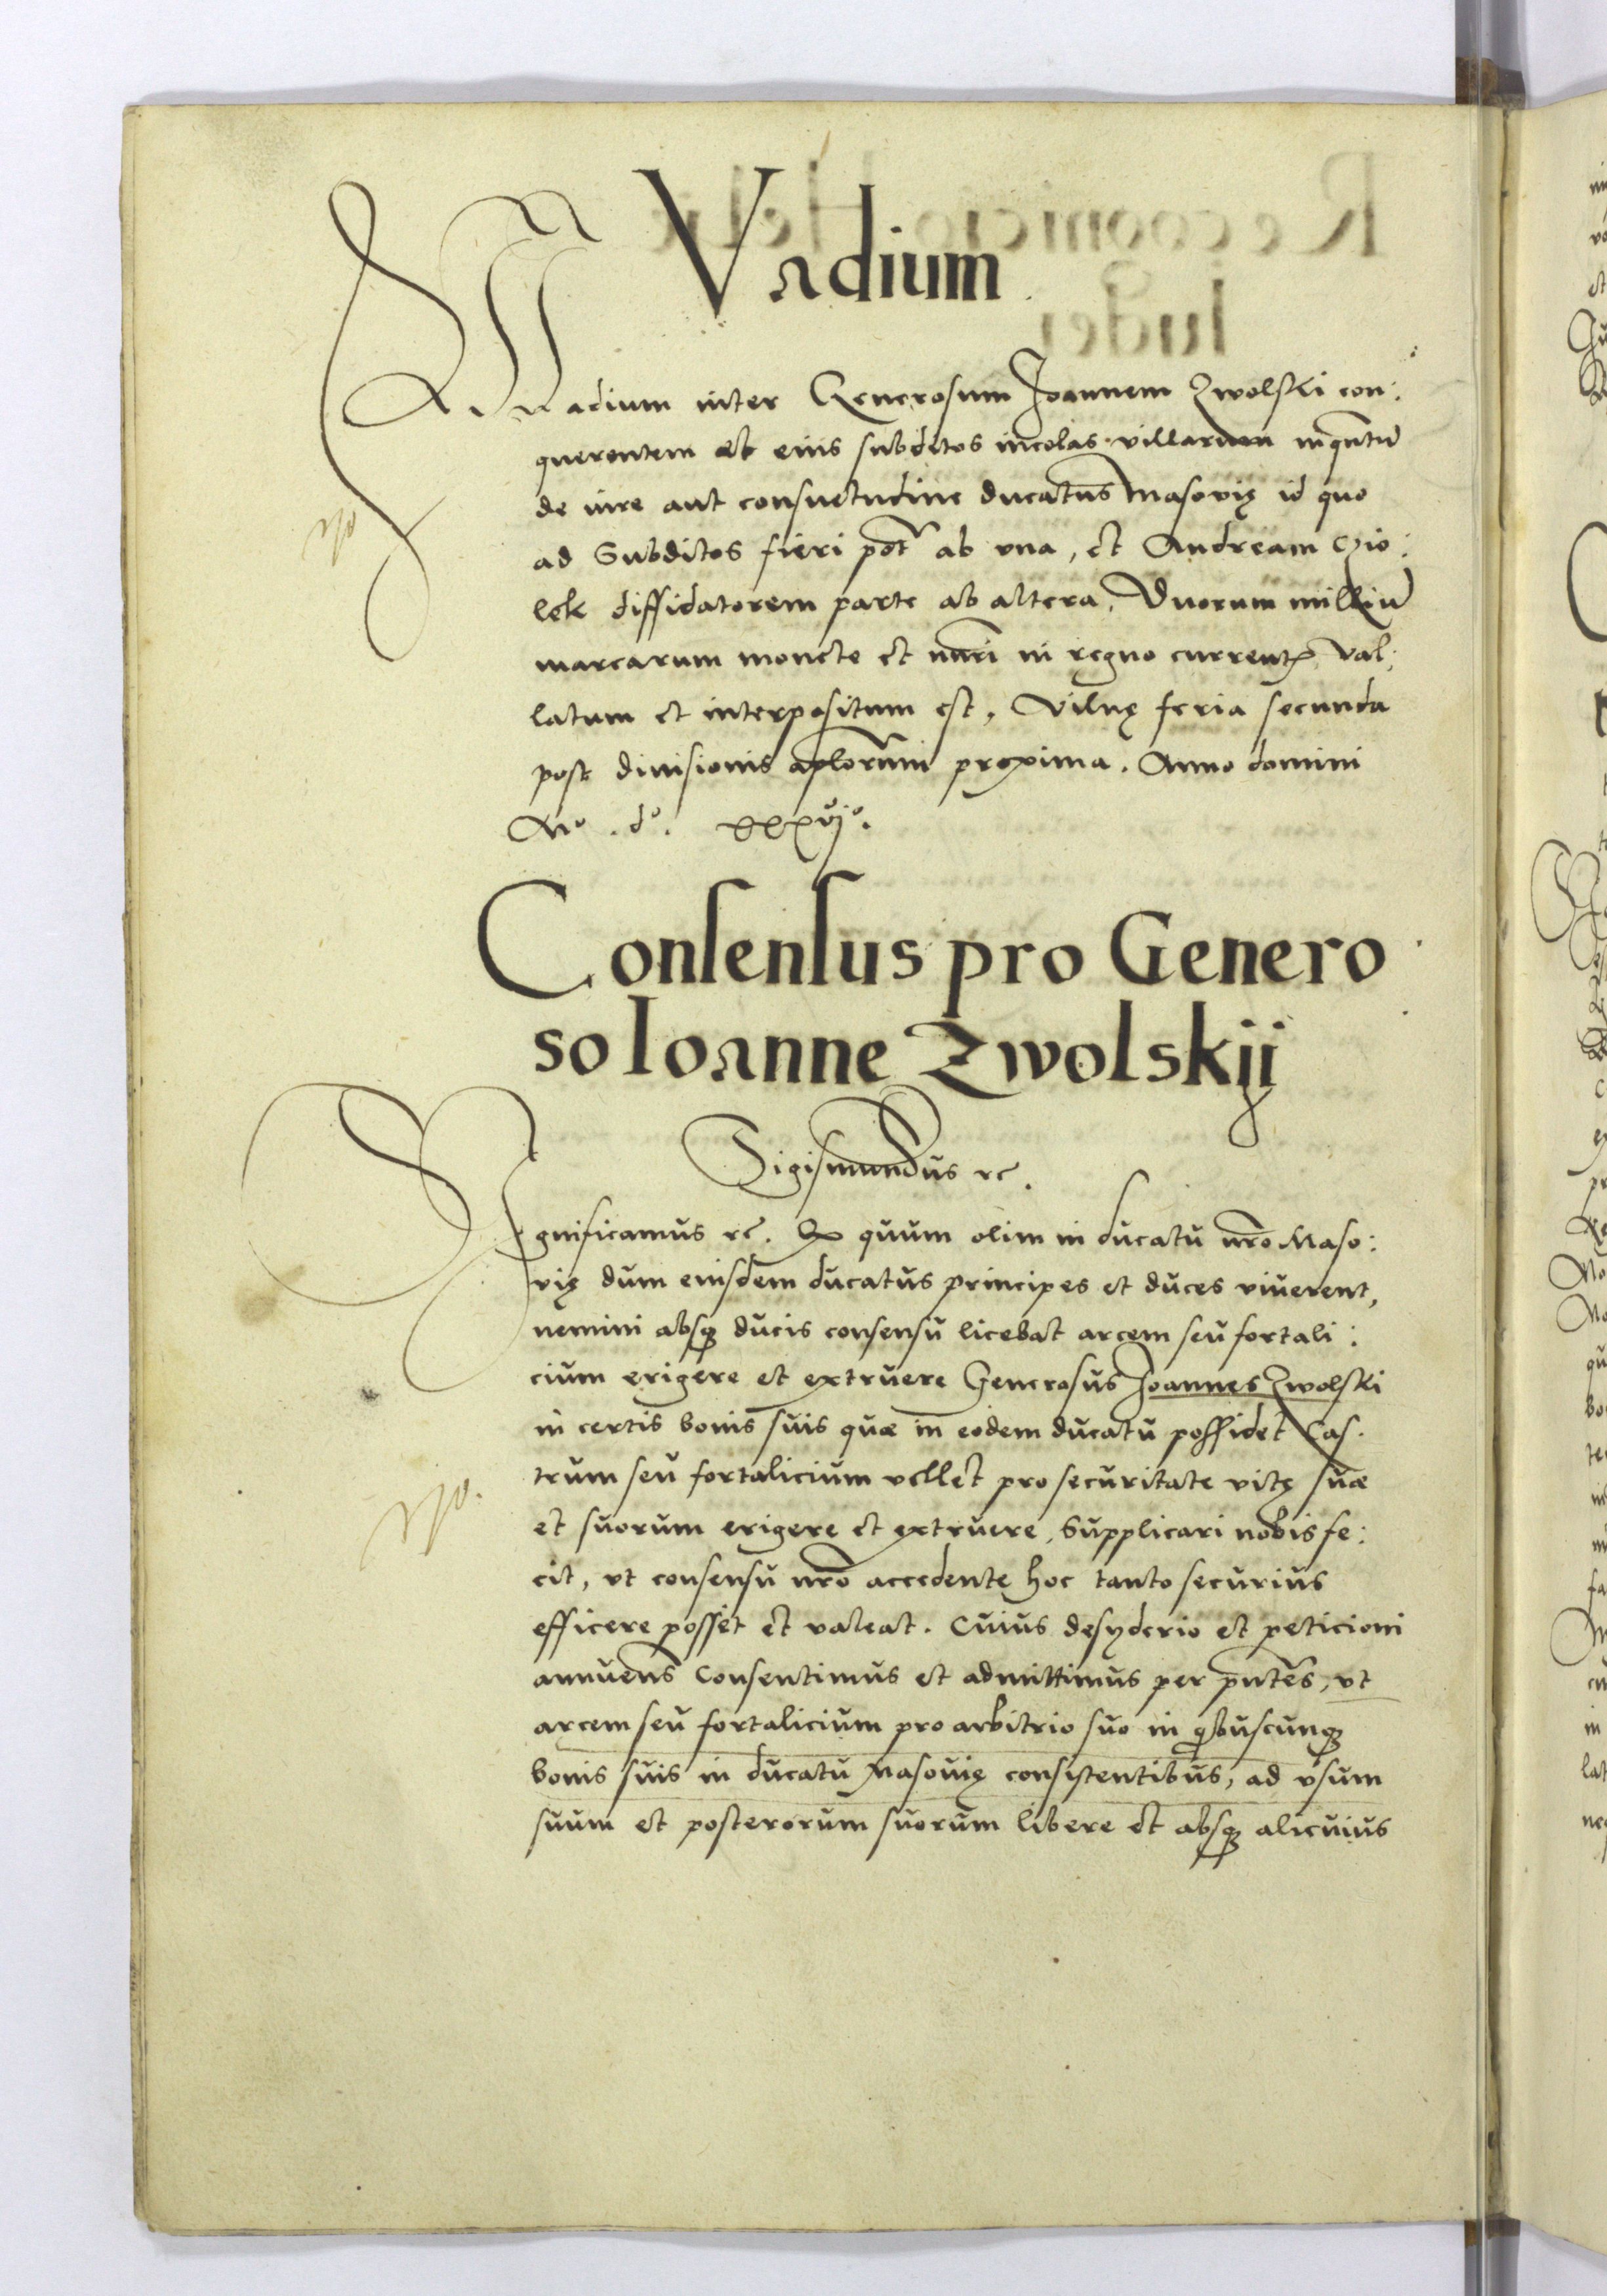 Vadium
Vadium inter Generosum Joannem Zwolski con:
querentem et eius subditos incolas villarum inqntũ
de iure aut consuetudine ducatus Masovię id quo
ad Subditos fieri pot ab vna, et Andream Cio:
lek diffidatorem parte ab altera, Duorum milliũ
marcarum monete et nuri in regno currentis val:
latum et interpositum est, Vilnę feria secunda
post diuisionis aplorum proxima. Anno domini
Mo. do. xxxvjo.
Consensus pro Genero
so Ioanne Zwolskij
Sigismundus rc.
Significamus rc. Q quum olim in ducatu nro Maso:
vię dum eiusdem ducatus principes et duces viuerent,
nemini absq ducis consensu licebat arcem seu fortali:
cium erigere et extruere Generosus Joannes Zwolski
in certis bonis suis quæ in eodem ducatu possidet Cas.
trum seu fortalicium vellet pro securitate vitę suæ
et suorum erigere et extruere, Supplicari nobis fe:
cit, vt consensu nro accedente hoc tanto securius
efficere posset et valeat. Cuius desyderio et peticioni
annuens Consentimus et admittimus per pntes, vt
arcem seu fortalicium pro arbitrio suo in qbuscunq
bonis suis in ducatu Masouię consistentibus, ad vsum
suum et posterorum suorum libere et absq alicuius